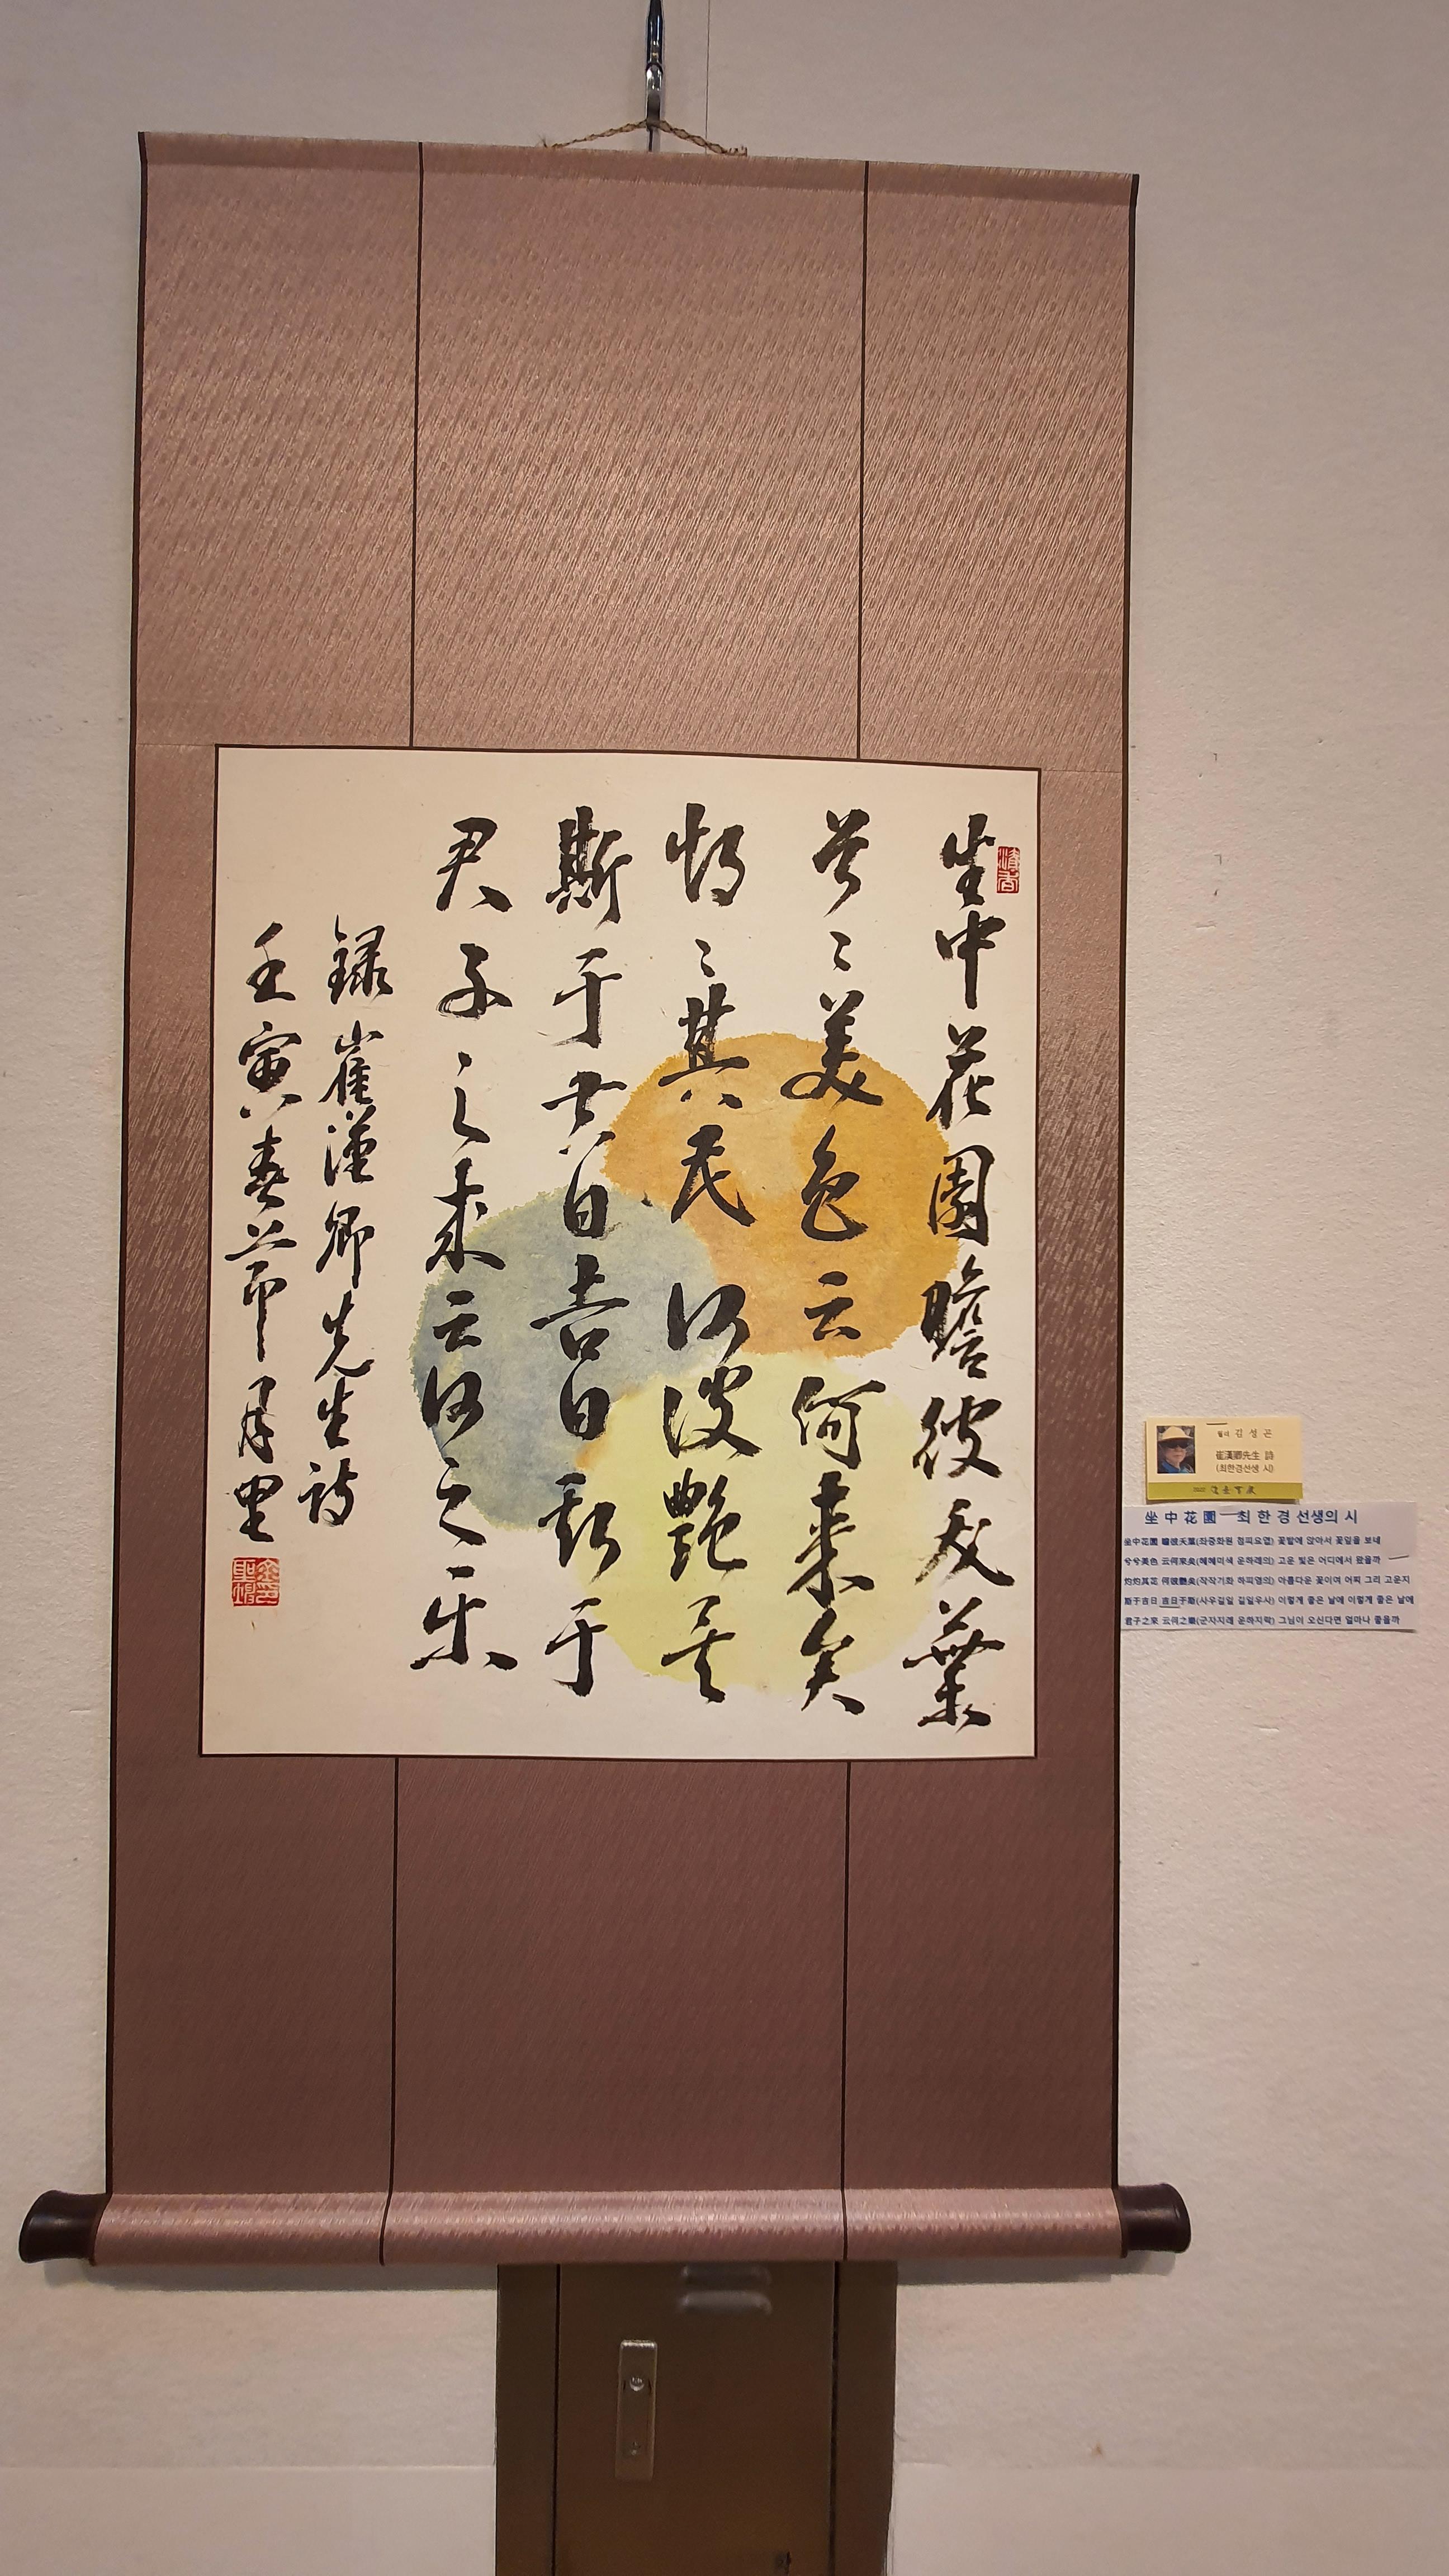 坐中花園瞻彼夭葉
兮〻美色云何来矣
灼〻其花何彼艶矣
斯于吉日吉日斯于
君子之来云何之乐
録崔漢卿先生詩
壬寅春節月里
월리 김성곤
崔漢卿先生 詩
(최한경선생 시)
2022
坐中花園 - 최한경 선생의 시
坐中花園 瞻彼夭葉(좌중화원 첨피요엽) 꽃밭에 앉아서 꽃잎을 보네
兮兮美色 云何來矣(혜혜미색 운하래의) 고운 빛은 어디에서 왔을까
灼灼其花 何彼艶矣(작작기화 하피염의) 아름다운 꽃이여 어찌 그리 고운지
斯于吉日 吉日于斯(사우길일 길일우사) 이렇게 좋은 날에 이렇게 좋은 날에
君子之來 云何之樂(군자지래 운하지락) 그님이 오신다면 얼마나 좋을까